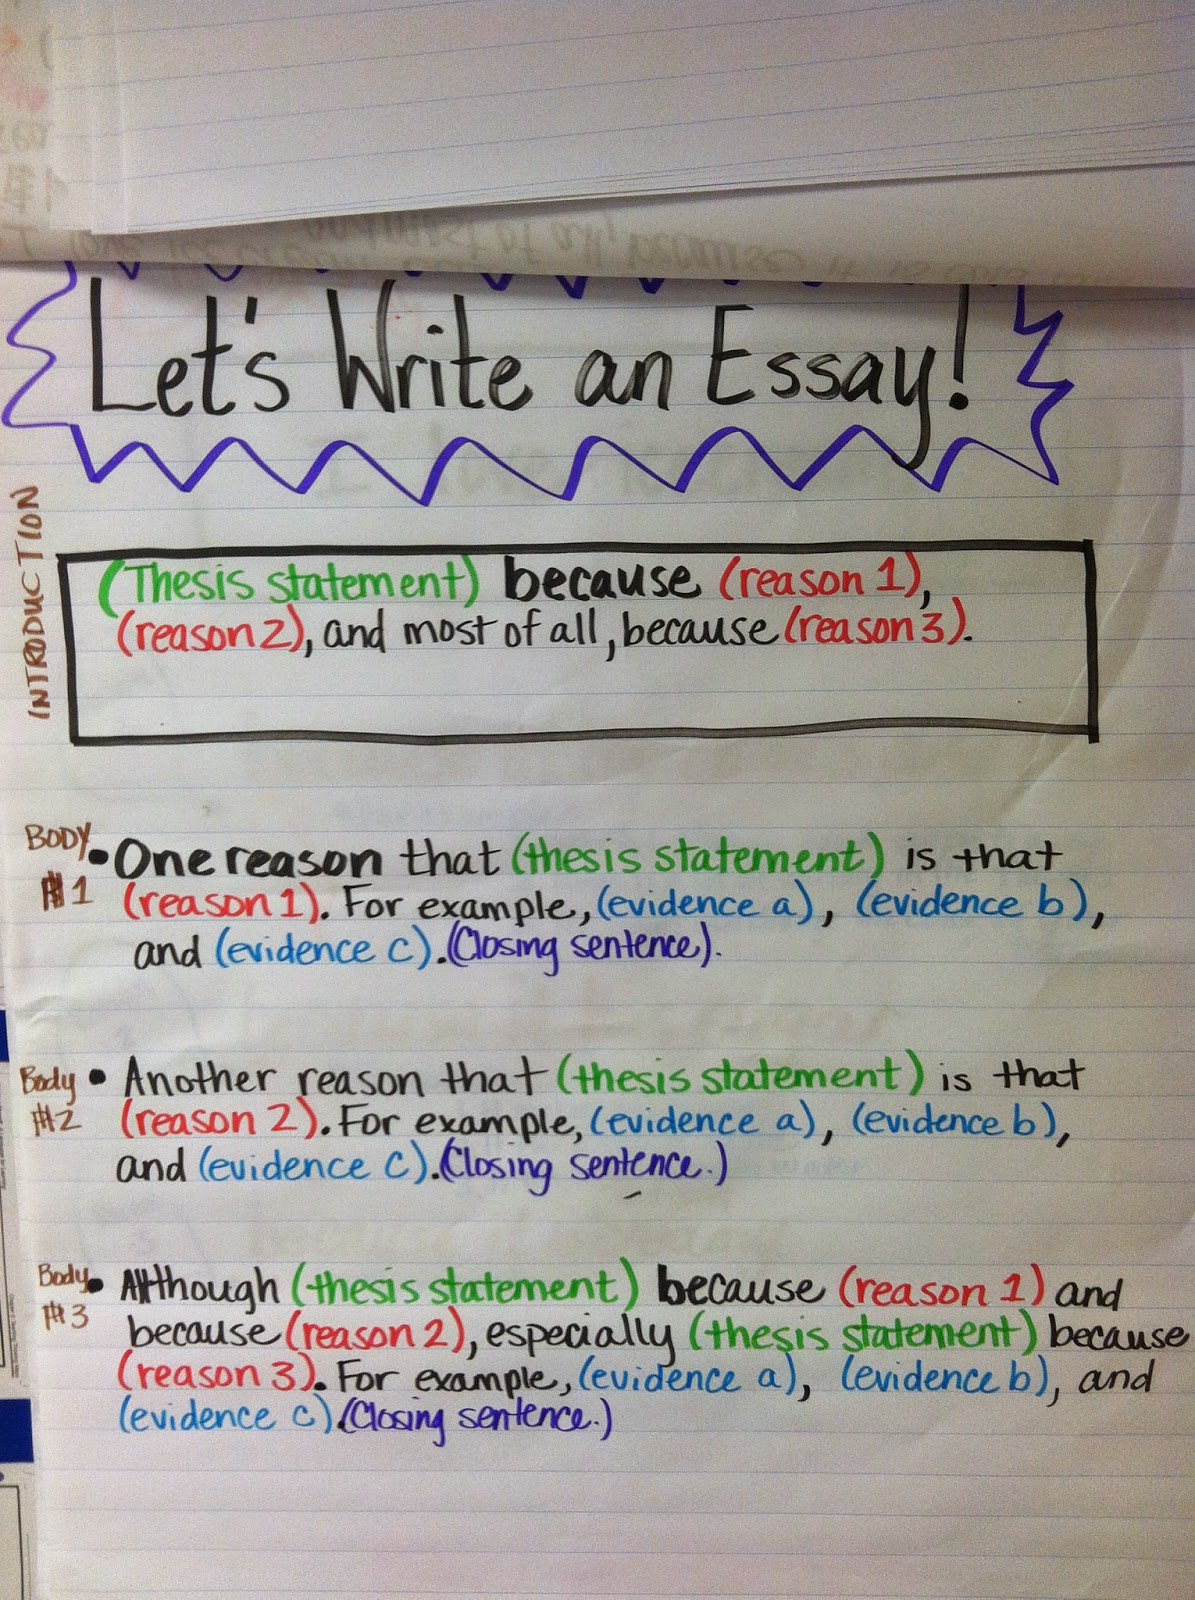 Let's Write an Essay!
INTRODUCTION
(Thesis statement) because (reason 1),
(reason 2), and most of all, because (reason 3).
BODY
#1
• One reason that (thesis statement) is that
(reason 1). For example, (evidence a), (evidence b),
and (evidence c). (Closing sentence).
Body
#2
• Another reason that (thesis statement) is that
(reason 2). For example, (evidence a), (evidence b),
and (evidence c). (Closing sentence.)
Body
#3
• Although (thesis statement) because (reason 1) and
because (reason 2), especially (thesis statement) because
(reason 3). For example, (evidence a), (evidence b), and
(evidence c). (Closing sentence.)